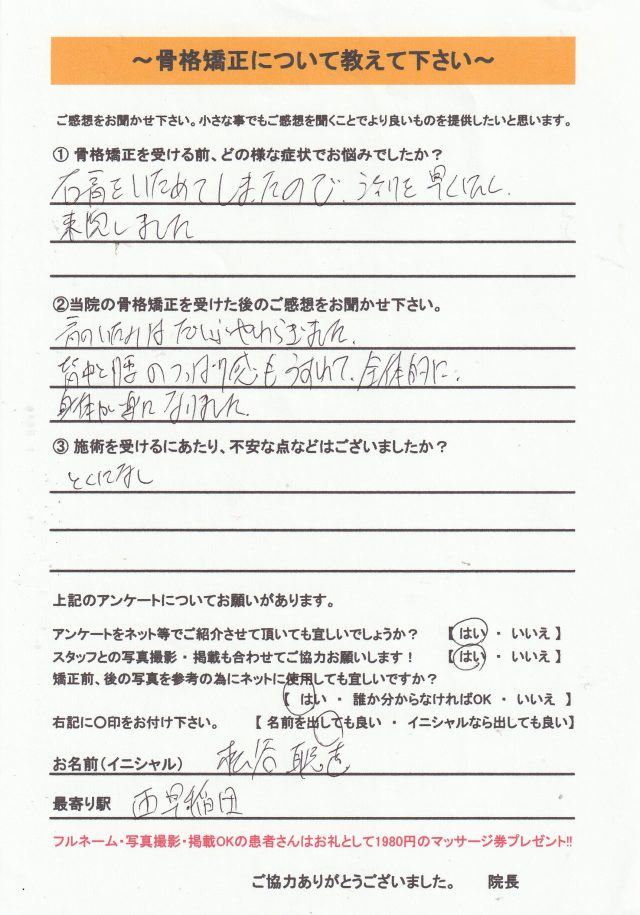 ～骨格矯正について教えて下さい～
ご感想をお聞かせ下さい。小さな事でもご感想を聞くことでより良いものを提供したいと思います。
① 骨格矯正を受ける前、どの様な症状でお悩みでしたか？
右肩をいためてしまたので、
来院しました
②当院の骨格矯正を受けた後のご感想をお聞かせ下さい。
肩のいたみはだいぶやわらぎました。
背中と腰のつっぱり感もうすれて、全体的に、
身体が楽になりました。
③ 施術を受けるにあたり、不安な点などはございましたか？
とくになし
上記のアンケートについてお願いがあります。
アンケートをネット等でご紹介させて頂いても宜しいでしょうか？ 【 はい ・ いいえ 】
スタッフとの写真撮影・掲載も合わせてご協力お願いします！ 【 はい ・ いいえ 】
矯正前、後の写真を参考の為にネットに使用しても宜しいですか？
【 はい ・ 誰か分からなければOK ・ いいえ 】
右記に〇印をお付け下さい。 【 名前を出しても良い ・ イニシャルなら出しても良い】
お名前（イニシャル） 松谷
最寄り駅 西早稲田
フルネーム・写真撮影・掲載OKの患者さんはお礼として1980円のマッサージ券プレゼント!!
ご協力ありがとうございました。 院長